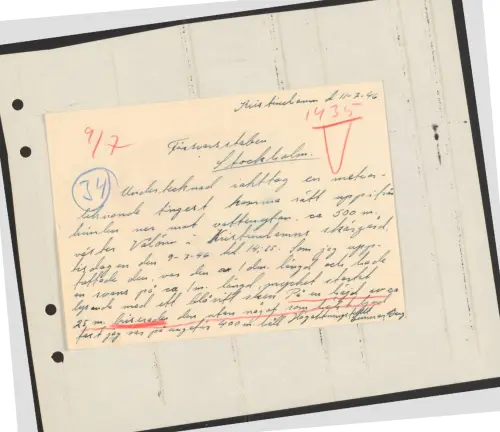 Kristinehamn d 11-7-46
1435
9/7
Försvarsstaben
Stockholm.
34
Undertecknad iakttog en meteor-
liknande tingest komma rätt uppifrån
himlen ner mot vattenytan, ca 500 m,
väster Vålön i Kristinehamns skärgård,
tisdagen den 9-7-46 kl 14.35. Som jag upp-
fattade den, var den ca 1 dm. längd och hade
en svans på ca 1 m. längd, mycket starkt
lysande med ett blåvitt sken. På en höjd av ca
25 m. försvann den utan något som helst ljud
fast jag var på ungefär 400 m håll.